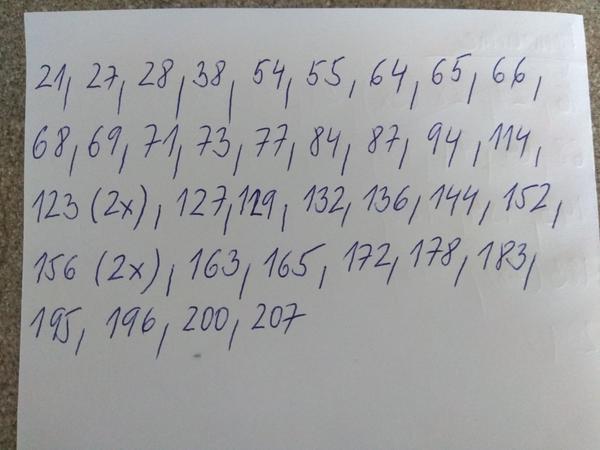 21, 27, 28, 38, 54, 55, 64, 65, 66,
68, 69, 71, 73, 77, 84, 87, 94, 114,
123 (2x), 127, 129, 132, 136, 144, 152,
156 (2x), 163, 165, 172, 178, 183,
195, 196, 200, 207